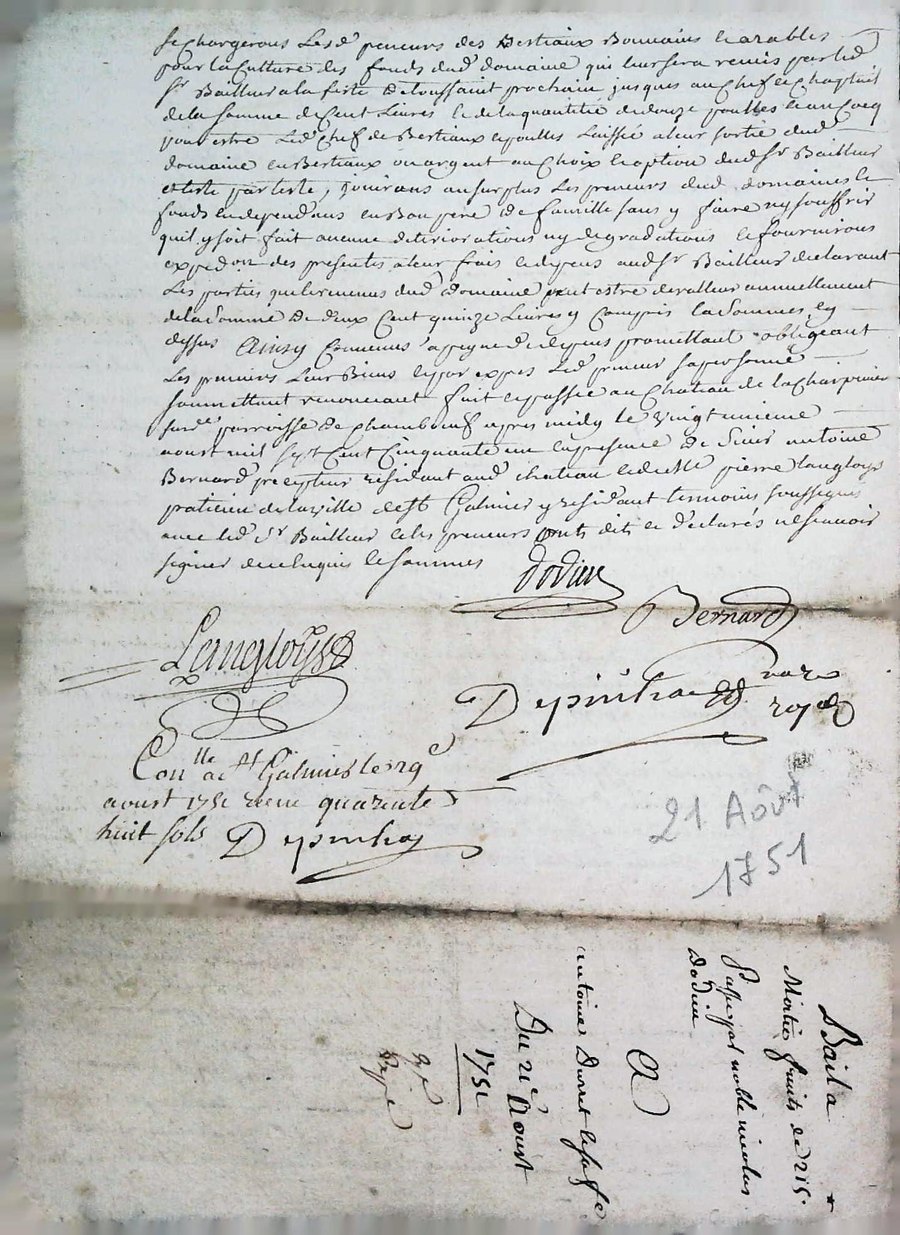 se chargerons Lesd preneurs des Bestiaux Boumains & arables
pour la Culture des fonds dud domaine qui leur sera remis par led
Sr Bailleur a la feste de toussaint prochain jusques au Chef & Chaptail
de la somme de Cent Livres & de la quantitée de douze poulles & un Cocq
pour estre Led Chef de Bestiaux & poulles Laissée a leur sortie dud
domaine en Bestiaux ou argent au Choix & option dud Sr Bailleur
et teste par teste, jouirons au surplus Les preneurs dud domaine &
fonds en dependans en Bon pere de famille sans y faire ny souffrir
quil y soit fait aucune deteriorations ny degradations & fourniront
expedon des presentes a leur frais & depens aud Sr Bailleur declarant
Les parties que les revenus dud domaine peut estre de valleur annuellement
de la somme de deux Cent quinze Livres y Compris la somme cy
dessus Ainsy Convenus a peyne de depens promettant obligeant
Les preneurs Leur Biens & par expres Led preneur sa personne
soumettant renonceant fait & passée au Chateau de la Charpinier
sur parroisse de Chambœuf apres midy le vingt unieme
aoust mil sept Cent Cinquante un en presence de Sieur antoine
Bernard precepteur residant aud chateau & de Me pierre Langloys
praticien de la ville de St Galmier y residant temoins soussignés
avec led Sr Bailleur & les preneurs onts dits & declarés ne scavoir
signer de ce enquis & sommes
Dodieu
Bernard
Langloys
Depinhac
nore
royal
Conlle a St Galmier le 29e
aoust 1751 recu quarente
huit sols Depinhac
21 Août
1751
Bail a
Mortié fruits de 215
Passé par noble nicolas
Dodieu
A
antoine Durret & sa fe
Du 21e Aoust
1751
Expe